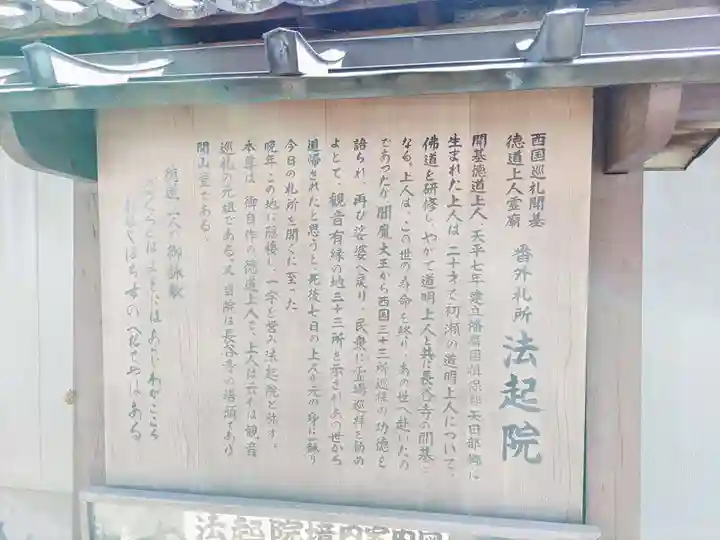 西国巡礼開基
徳道上人霊廟
番外札所 法起院
開基徳道上人、天平七年建立播磨国揖保郡矢田部郷に
生まれた上人は二十才で初瀬の道明上人について、
佛道を研修し、やがて道明上人と共に長谷寺の開基と
なる。上人は、この世の寿命を終り、あの世へ赴いたの
であったが閻魔大王から西国三十三所巡拝の功徳を
語られ、再び娑婆へ戻り、民衆に霊場巡拝を勧め
よとて、観音有縁の地三十三所を示されあの世から
追帰されたと思うと、死後七日の上人が元の身に蘇り
今日の札所を開くに至った
晩年この地に隠棲し、一宇を営み法起院と称す。
本尊は、御自作の徳道上人で、上人は云わば観音
巡礼の元祖である。又、当院は長谷寺の塔頭であり
開山堂である。
徳道上人御詠歌
ごくらくはよそにはあらじわがこころ
おなじはちすの へだてやはある
法起院境内案内図